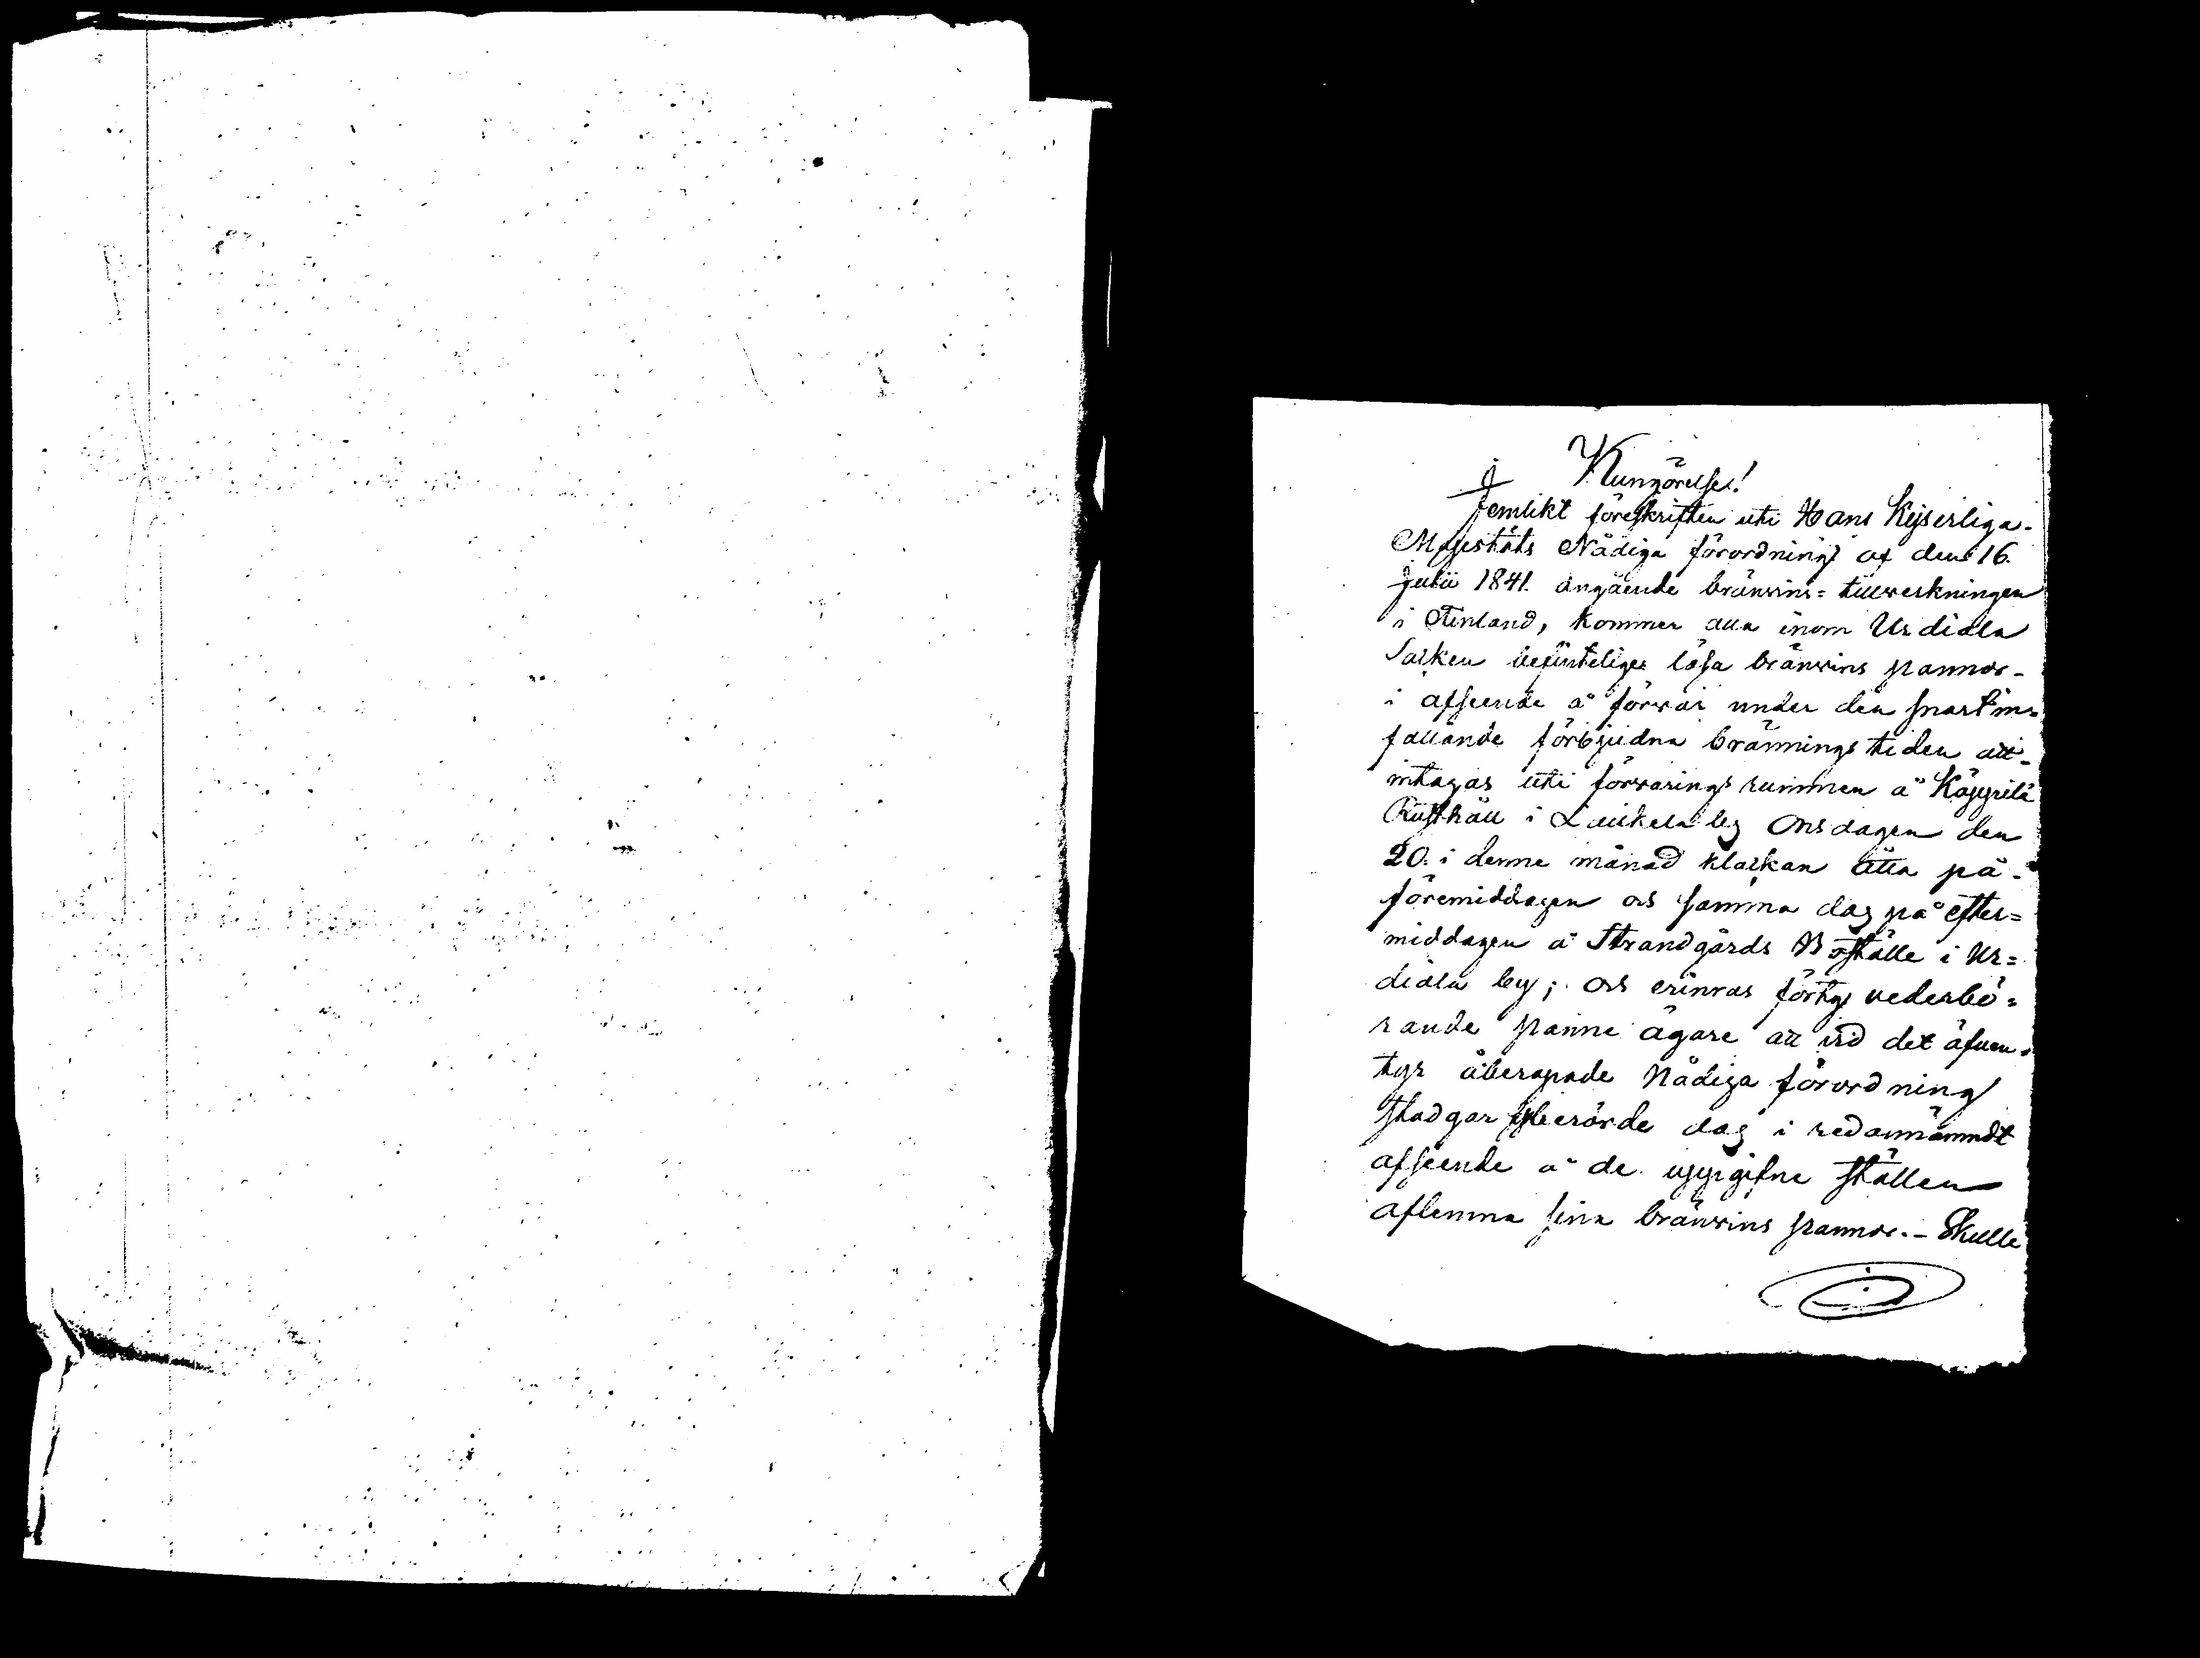 Kungörelse!
Jemlikt föreskriften uti Hans Kejserliga-
Majestäts Nådiga förordning af den 16.
Julii 1841. angående bränvins=tillverkningen
i Finland, kommer alla inom Urdiala
Socken befinteliga lösa bränvins pannor-
i afseende å förvar under den snart in=
fallande förbjudna brännings tiden att-
intagas uti förvarings rummen å Käppilä
Rusthåll i Laukela by Onsdagen den
20. i denne månad klockan åtta på-
föremiddagen och samma dag på efter=
middagen å Strandgårds Boställe i Ur=
diala by; och erinras förty vederbö=
rande panne ägare att vid det äfven-
tyr åberopade Nådiga förordning
stadgar berörde dag i redannämndt
afseende å de uppgifne ställen
aflemna sina bränvins pannor.- Skulle